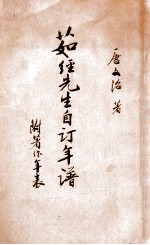 唐文治 著
茹經先生自訂年譜
附著作年表